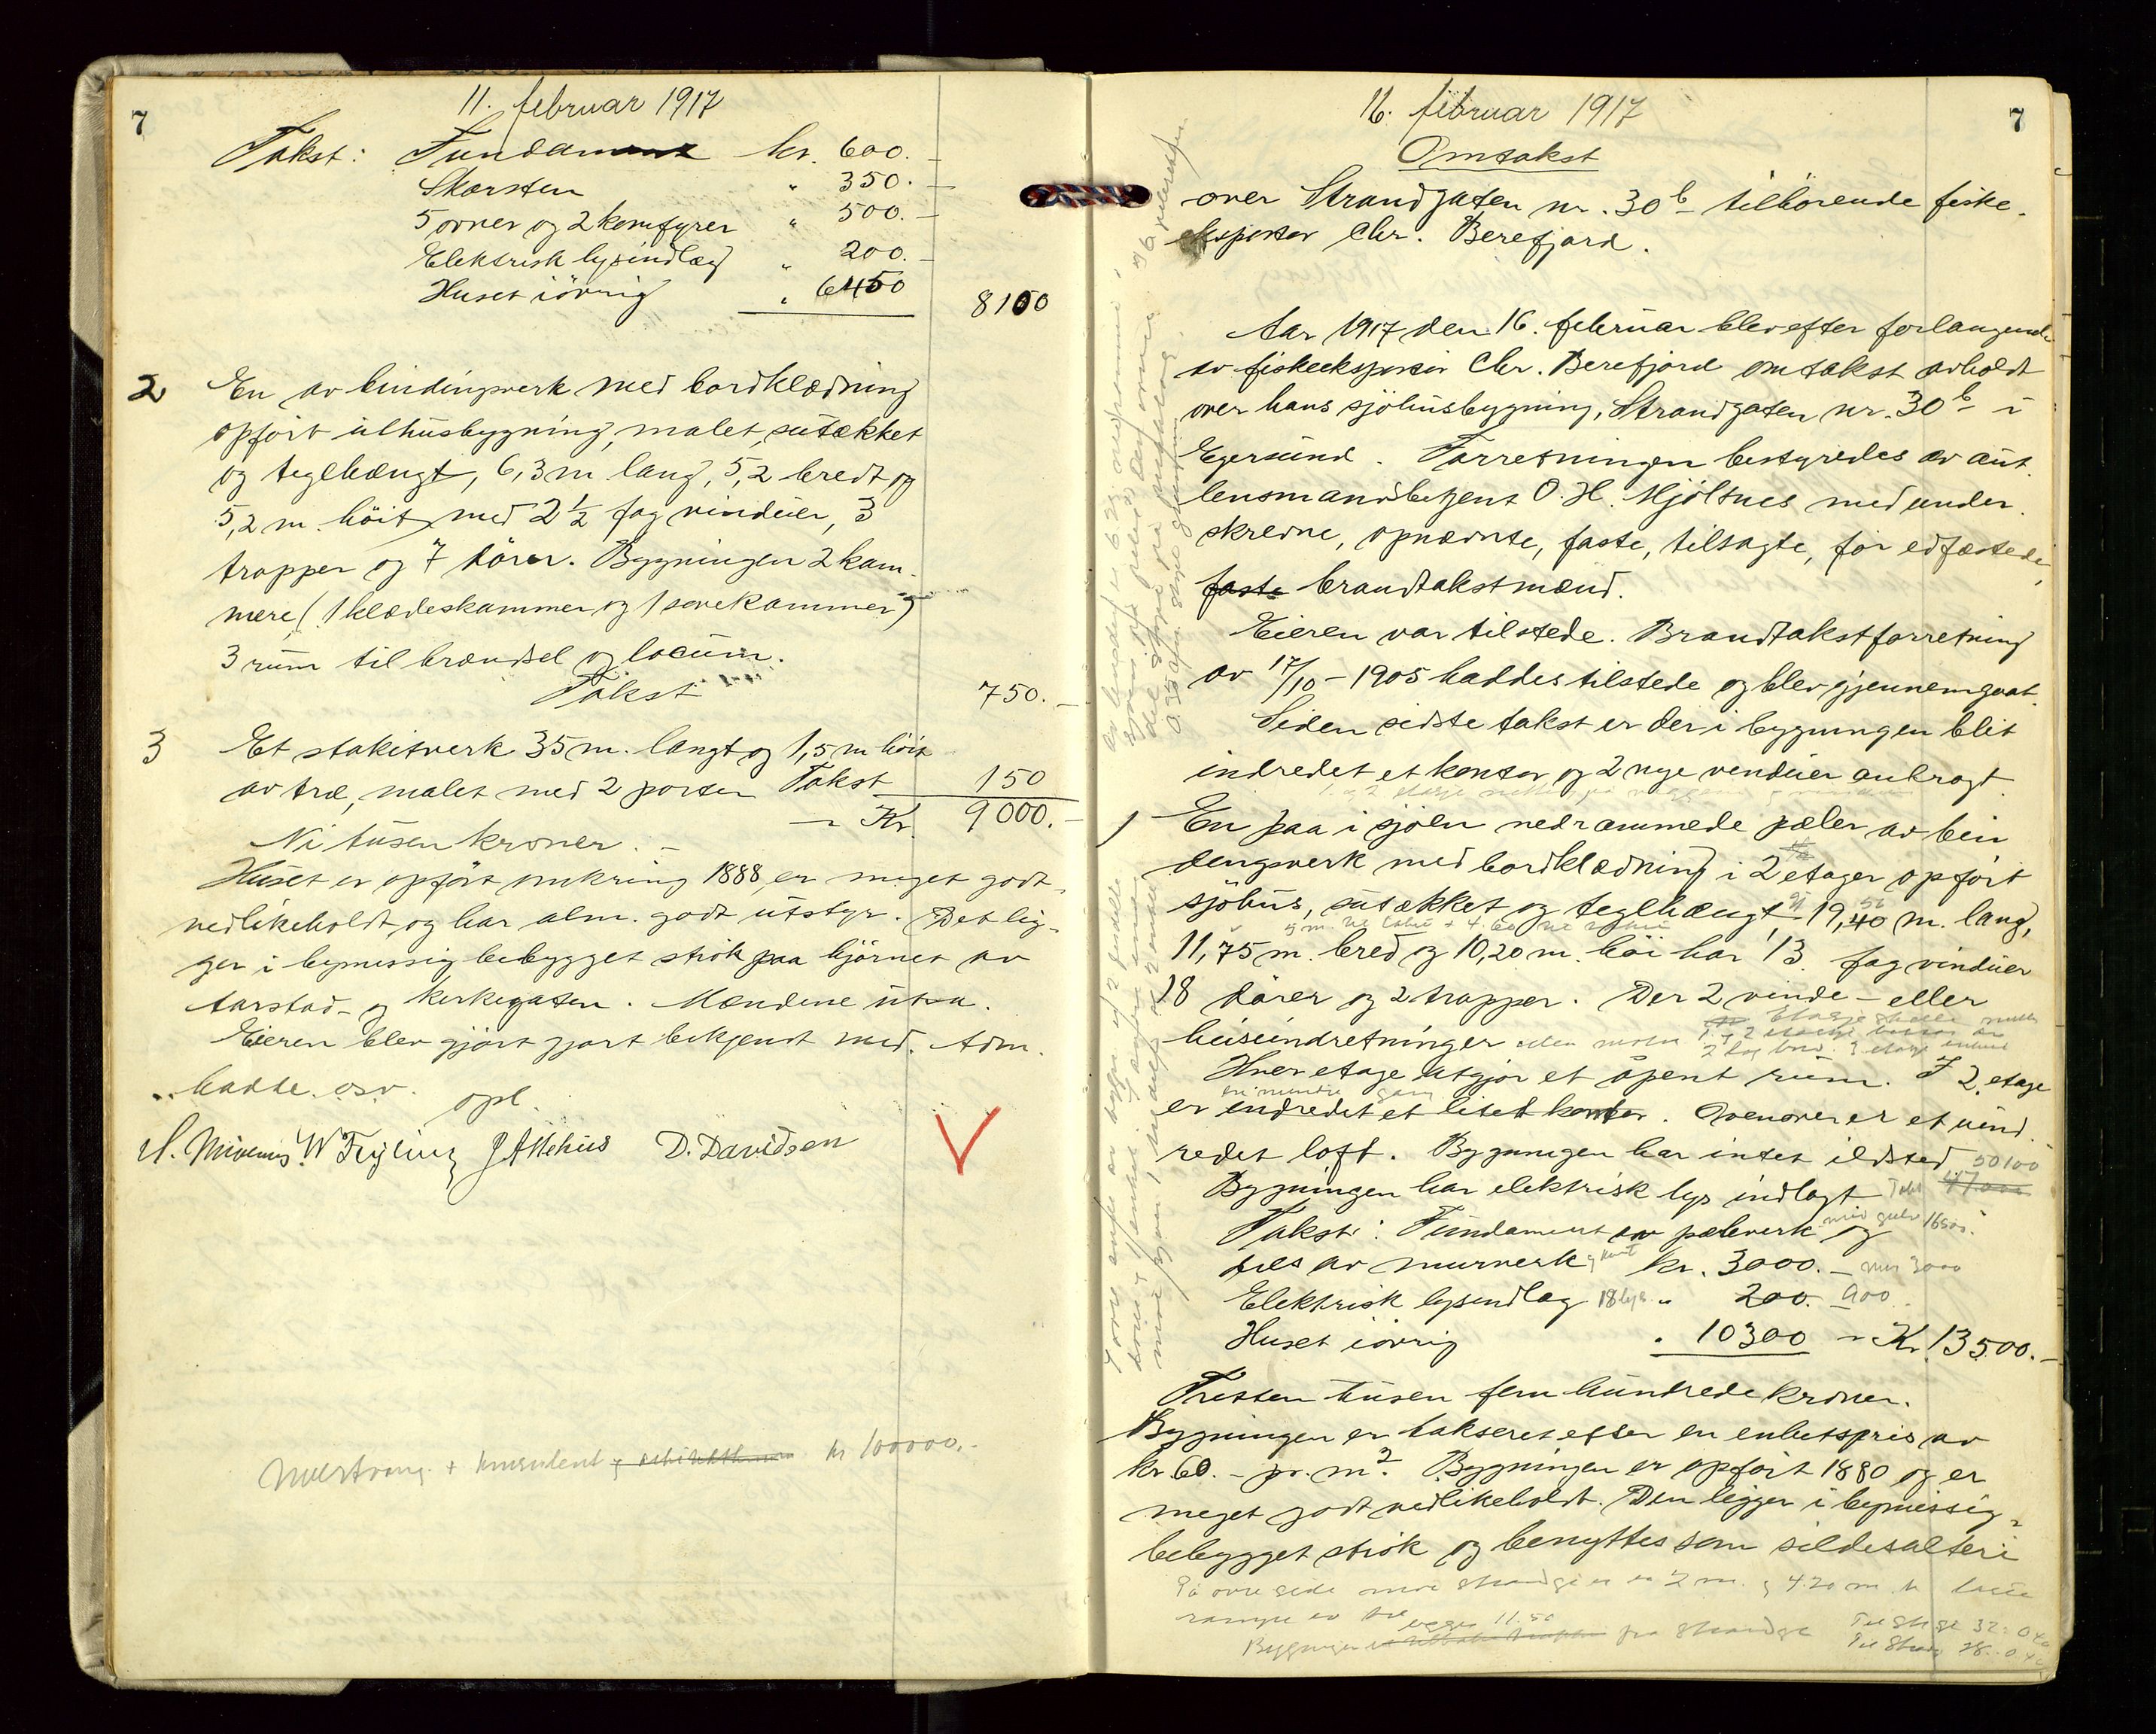 7
11. februar 1917
Takst: Fundament kr. 600.-
Skorsten " 350.-
5 ovner og 2 komfyrer " 500.-
Elektrisk lysindlæg " 200.-
Huset iövrig " 6450
8100
2 En av bindingverk med bordklædning
opfört uthusbygning, malet, sutækket
og teglhængt, 6,3 m lang, 5,2 bredt og
5,2 m. höit med 2 1/2 fag vinduer, 3
trapper og 7 dörer. Bygningen 2 kam-
mere (1 klædeskammer og 1 sovekammer)
3 rum til brændsel og locum.
Takst 750.-
3 Et stakitverk 35 m. langt og 1,5 m höit
av træ, malet med 2 porter Takst 150
- Kr. 9000.-
Ni tusen kroner. -
Huset er opfört omkring 1888, er meget godt
vedlikeholdt, og har alm. godt utstyr. Det lig-
ger i bymessig bebygget strök paa hjörnet av
Aarstad- og Kirkegaten. Mændene utsa.
Eieren blev gjört gjort bekjendt med. Adm.
hadde osv.
opl.
W. Feyling J Mehus D. Davidsen
kr 100000.-
7
16. februar 1917
Omtakst
over Strandgaten nr. 30b tilhörende fiske-
eksportör Chr. Berefjord.
Aar 1917 den 16. februar blev efter forlangende
av fiskeeksportör Chr. Berefjord omtakst avholdt
over hans sjöhusbygning, Strandgaten nr. 30b i
Egersund. Forretningen bestyredes av aut.
lensmandsbetjent O. H. Mjölsnes med under-
skrevne, opnævnte, faste, tilsagte, för edfæstede,
faste brandtakstmænd.
Eieren var tilstede. Brandtakstforretning
av 17/10 - 1905 haddes tilstede og blev gjennemgaat.
Siden sidste takst er der i bygningen blit
indredet et kontor og 2 nye vinduer anbragt.
1 En paa i sjöen nedrammede pæler av bin
dingsverk med bordklædning i 2 etager opfört
sjöhus, sutækket og teglhængt, 19,40 m. lang,
11,75 m. bred og 10,20 m. höi har 13 fag vinduer
18 dörer og 2 trapper. Der 2 vinde- eller
heiseindretninger
Hver etage utgjör et åpent rum. I 2. etage
er indredet et litet kontor. Ovenover er et uind
redet loft. Bygningen har intet ildsted. 50100
Bygningen har elektrisk lys indlagt 47000
Takst: Fundament av pæleverk og
dels av murverk kr. 3000.- 3000
Elektrisk lysindlæg 18 lys " 200. 900
Huset iövrig " 10300 - Kr. 13500.-
Tretten tusen fem hundrede kroner.
Bygningen er takseret efter en enhetspris av
kr. 60.- pr. m². Bygningen er opfört 1880 og er
meget godt vedlikeholdt. Den ligger i bymessig
bebygget strök og benyttes som sildesalteri
Bygningen 11.50 fra Strandgt